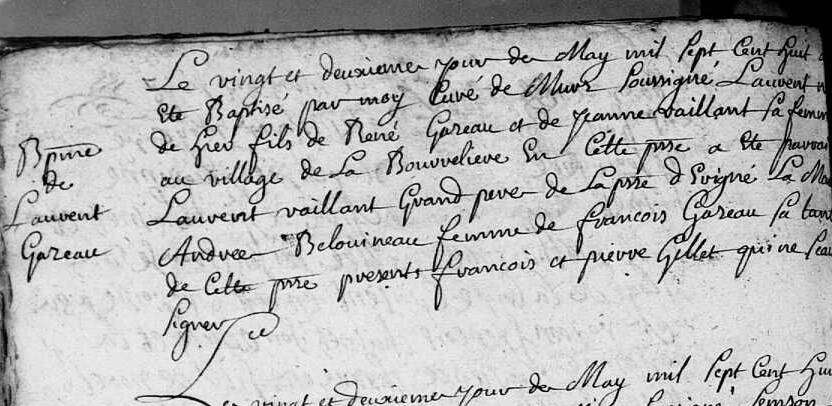 Le vingt et deuxieme jour de May mil Sept Cent huit a
Ete Baptisé par moy Curé de Murs Soussigné Laurent n
de hier fils de René Gazeau et de Jeanne vaillant Sa femm
au village de La Bourreliere En Cette prse a Ete parrai
Laurent vaillant Grand pere de La prse d'Erigné La Ma
Andree Belouineau femme de francois Gazeau Sa tant
de Cette prse presents francois et pierre Gillet qui ne Sca
Signer
Bpme
de
Laurent
Gazeau
Le vingt et deuxieme jour de May mil Sept Cent hui